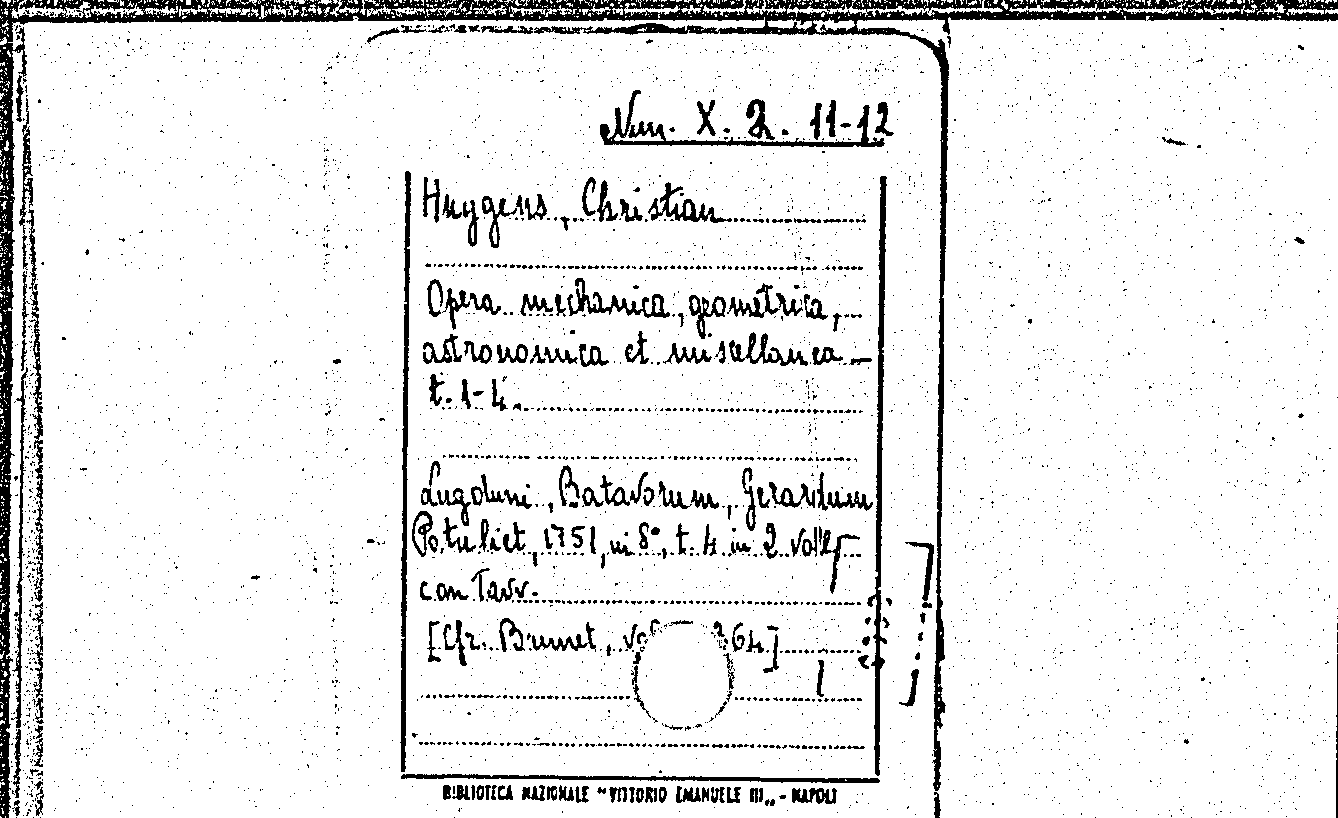 Num. X. 2. 11-12
Huygens, Christian
Opera mechanica, geometrica,
astronomica et miscellanea -
t. 1-4.
Lugduni, Batavorum, Gerardum
Potuliet, 1751, in 8°, t. 4 in 2 voll
con Tavv.
[Cfr. Brunet, 364]
BIBLIOTECA NAZIONALE "VITTORIO EMANUELE III„ - NAPOLI